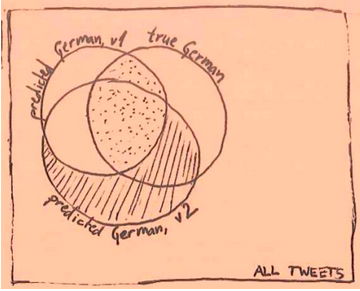 predicted German, v1
true German
predicted German, v2
ALL TWEETS